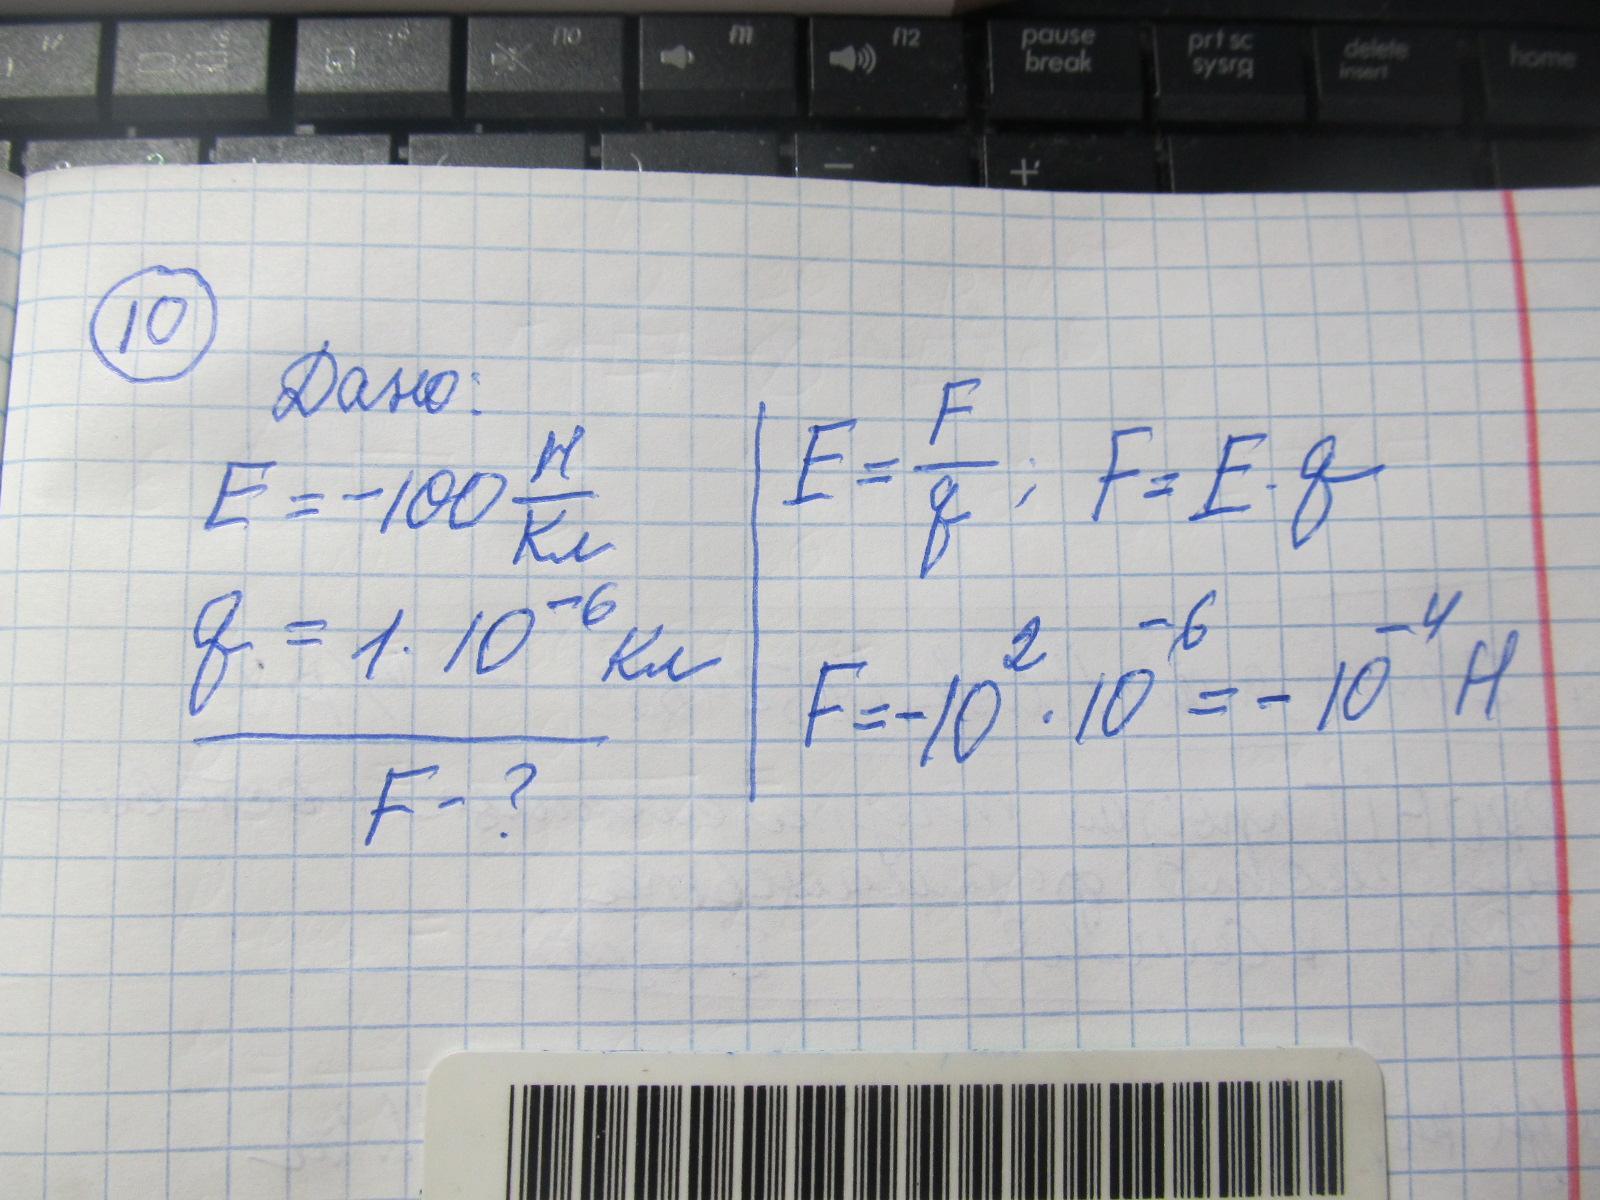 f10 f11 f12 pause break prt sc sysrq delete insert home
- +
10
Дано:
E = -100 Н/Кл
q = 1 · 10⁻⁶ Кл
F - ?
E = F/q ; F = E · q
F = -10² · 10⁻⁶ = -10⁻⁴ Н